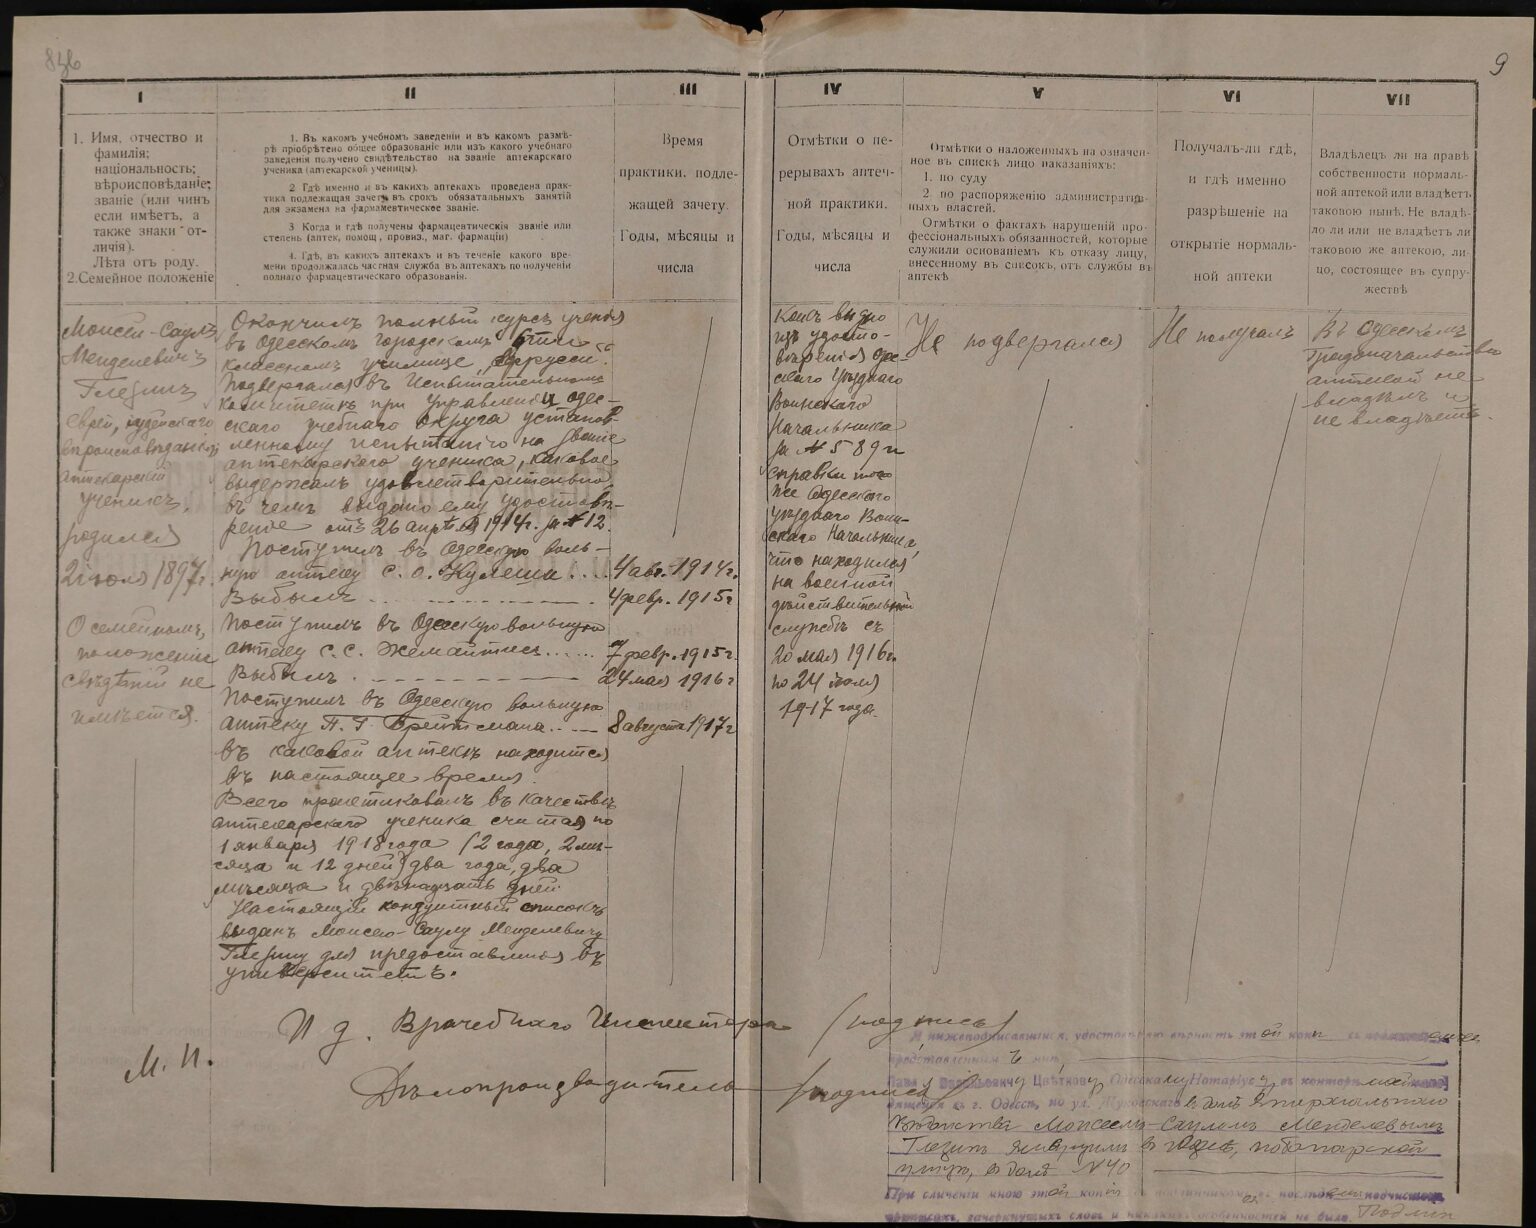 836
9
I
1. Имя, отчество и
фамилія;
національность;
вѣроисповѣданіе;
званіе (или чинъ
если имѣетъ, а
также знаки от-
личія).
Лѣта отъ роду.
2.Семейное положеніе
II
1. Въ какомъ учебномъ заведеніи и въ какомъ размѣ-
рѣ пріобрѣтено общее образованіе или изъ какого учебнаго
заведенія получено свидѣтельство на званіе аптекарскаго
ученика (аптекарской ученицы).
2. Гдѣ именно и въ какихъ аптекахъ проведена прак-
тика подлежащая зачету въ срокъ обязатальныхъ занятій
для экзамена на фармамевтическое званіе.
3 Когда и гдѣ получены фармацевтическія званіе или
степень (аптек, помощ , провиз., маг. фармаціи)
4. Гдѣ, въ какихъ аптекахъ и въ теченіе какого вре-
мени продолжалась частная служба въ аптекахъ по полученіи
полнаго фармацевтическаго образованія.
III
Время
практики. подле-
жащей зачету.
Годы, мѣсяцы и
числа
IV
Отмѣтки о пе-
рерывахъ аптеч-
ной практики.
Годы, мѣсяцы и
числа
V
Отмѣтки о наложенныхъ на означен-
ное въ спискѣ лицо наказаніяхъ:
1. по суду
2. по распоряженію административ-
ныхъ властей.
Отмѣтки о фактахъ нарушеній про-
фессіональныхъ обязанностей, которые
служили основаніемъ къ отказу лицу,
внесенному въ списокъ, отъ службы въ
аптекѣ
VI
Получалъ-ли гдѣ,
и гдѣ именно
разрѣшеніе на
открытіе нормаль-
ной аптеки
VII
Владѣлецъ ли на правѣ
собственности нормаль-
ной аптекою или владѣетъ
таковою нынѣ. Не владѣ-
ло ли или не владѣетъ ли
таковою же аптекою, ли-
цо, состоящее въ супру-
жествѣ
Моисей-Саулъ
Менделевичъ
Глезинъ
Еврей, іудейскаго
вѣроисповѣданія,
аптекарскій
ученикъ,
родился
2 іюля 1897г.
О семейномъ
положеніи
свѣдѣній не
имѣется.
Окончилъ полный курсъ ученія
въ Одесскомъ городскомъ 6ти
классномъ училище
Подвергался въ Испытательномъ
комитетѣ при управленіи Одес-
скаго учебнаго округа установ-
ленному испытанію на званіе
аптекарскаго ученика, каковое
выдержалъ удовлетворительно,
въ чемъ выдано ему удостовѣ-
реніе отъ 26 апрѣля 1914г. за № 12.
Поступилъ въ Одесскую воль-
ную аптеку С. О. Кулеши . . . 4 авг. 1914г.
Выбылъ . . . 4 февр. 1915г
Поступилъ въ Одесскую вольную
аптеку С. С. Жемайтисъ . . . 7 февр. 1915г.
Выбылъ . . . 24 мая 1916г
Поступилъ въ Одесскую вольную
аптеку П. Г. Брейтмана . . . 8 августа 1917г
въ каковой аптекѣ находится
въ настоящее время.
Всего практиковалъ въ качествѣ
аптекарскаго ученика считая по
1 января 1918 года (2 года, 2 мѣ-
сяца и 12 дней) два года, два
мѣсяца и двѣнадцать дней.
Настоящій кондуитный списокъ
выданъ Моисею-Саулу Менделевичу
Глезину для предоставленія въ
университетъ.
Какъ видно
изъ удосто-
вѣренія Одес-
скаго Уѣзднаго
Воинскаго
Начальника
за № 589 и
справки того
же Одесскаго
уѣзднаго Воин-
скаго Начальника,
что находился
на военной
дѣйствительной
службѣ съ
20 мая 1916г.
по 24 іюля
1917 года.
Не подвергался
Не получалъ
Въ Одесскомъ
Градоначальствѣ
аптекой не
владѣлъ и
не владѣетъ.
И д. Врачебнаго Инспектора (подпись)
М. П.
Дѣлопроизводитель (подпись)
Я нижеподписавшійся, удостовѣряю вѣрность этой копіи съ подлинникомъ
представленнымъ мнѣ
Цвѣткову Одесскому Нотаріусу, въ конторѣ моей, нахо-
дящейся въ г. Одессѣ, по ул. Жуковскаго въ домѣ Епархіальнаго
Вѣдомства Моисеемъ-Сауломъ Менделевымъ
Глезинъ живущимъ въ Одессѣ, по Базарной
улицѣ, въ домѣ № 40
При сличеніи мною этой копіи съ подлинникомъ въ послѣднемъ подчистокъ
приписокъ, зачеркнутыхъ словъ и никакихъ особенностей не было. Подлин